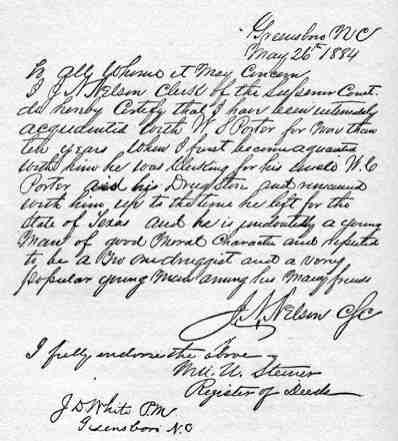 Greensboro N C
May 26th 1884
To All Whome it May Concern
I J N Nelson Clerk of the Superior Court
do hereby Certify that I have been intimately
acquainted with W. S Porter for Mor than
ten years When I first become aquainted
with him he was Clerking for his uncle W. C
Porter and his Drug Store and remained
with him up to the time he left for the
State of Texas and he is undoubtedly a young
Man of good Moral Character and reputed
to be a No one druggist and a very
popular young Man among his Many friends
J. N. Nelson CSC
I fully endorse the above
Wm. U. Steiner
Register of Deeds
J D White P.M
Greensboro N. C